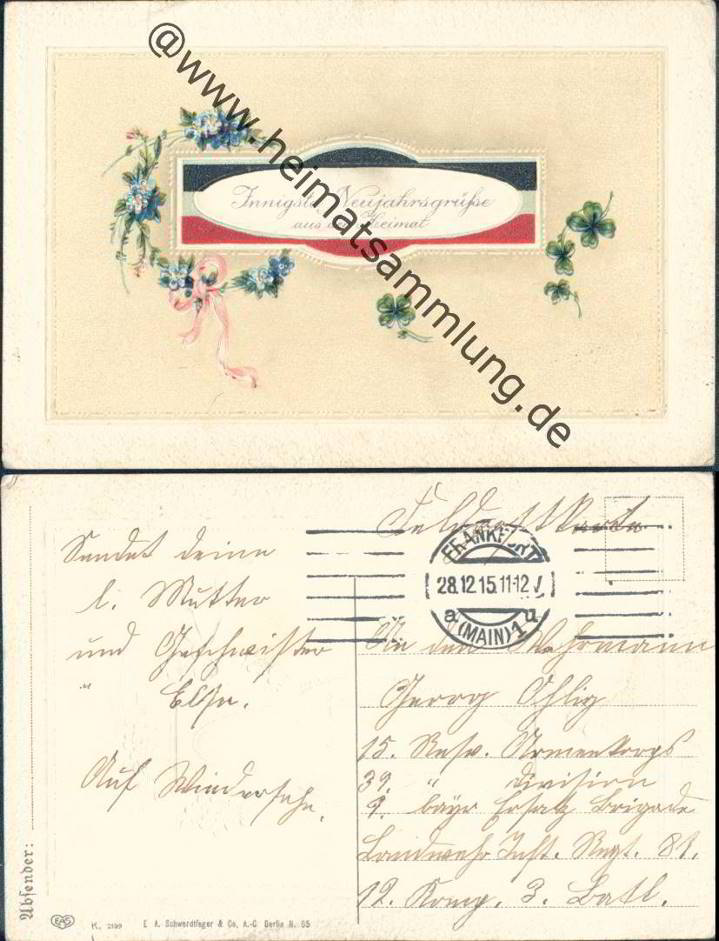 @www.heimatsammlung.de
Innigste Neujahrsgrüße
aus der Heimat
Feldpostkarte
FRANKFURT
28.12.15.11-12V
a (MAIN) 1 u
Sendet deine
l. Mutter
und Geschwister
" Else.
Auf Wiedersehn.
An den Wehrmann
Georg Ohlig
15. Resv. Armeekorps
39. " Division
9. bayr Ersatz Brigade
Landwehr Inft. Regt. 81.
12. Komp. 3. Batl.
Absender:
EAS
K. 2199
E. A. Schwerdtfeger & Co, A.-G. Berlin N. 65